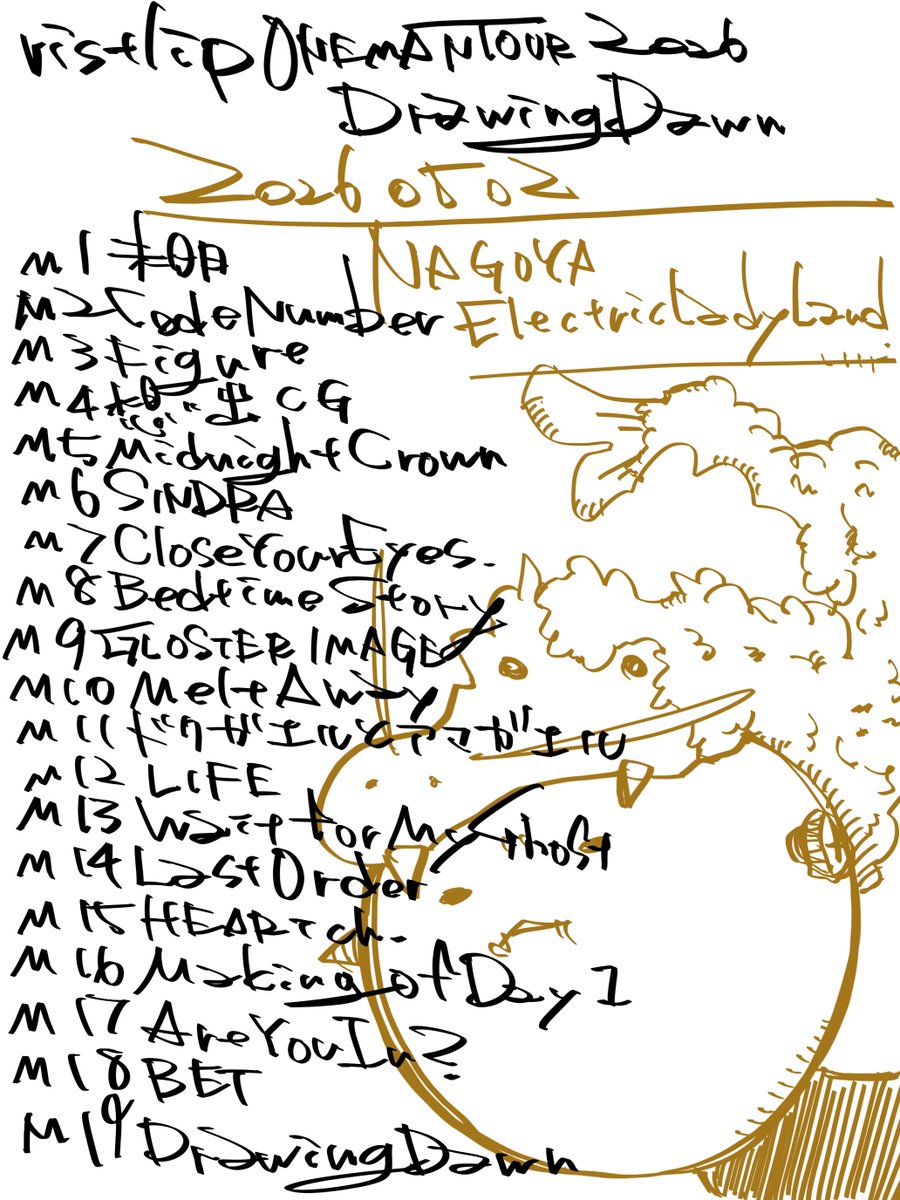 vistlip ONEMANTOUR 2026
DrawingDawn
2026 05 02
NAGOYA
ElectricLadyLand
M1 未明
M2 CodeNumber
M3 Figure
M4 想ひ出CG
M5 MidnightCrown
M6 SINDRA
M7 CloseYourEyes.
M8 BedtimeStory
M9 GLOSTER IMAGE
M10 MeltAway
M11 ドクガエルとアマガエル
M12 LIFE
M13 Wait for My
M14 LastOrder
M15 HEART ch.
M16 Making of Day1
M17 AreYouIn?
M18 BET
M19 DrawingDawn